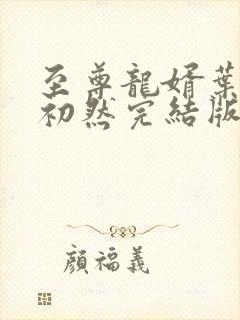 至尊龍婿葉
初然完結版
顏福義